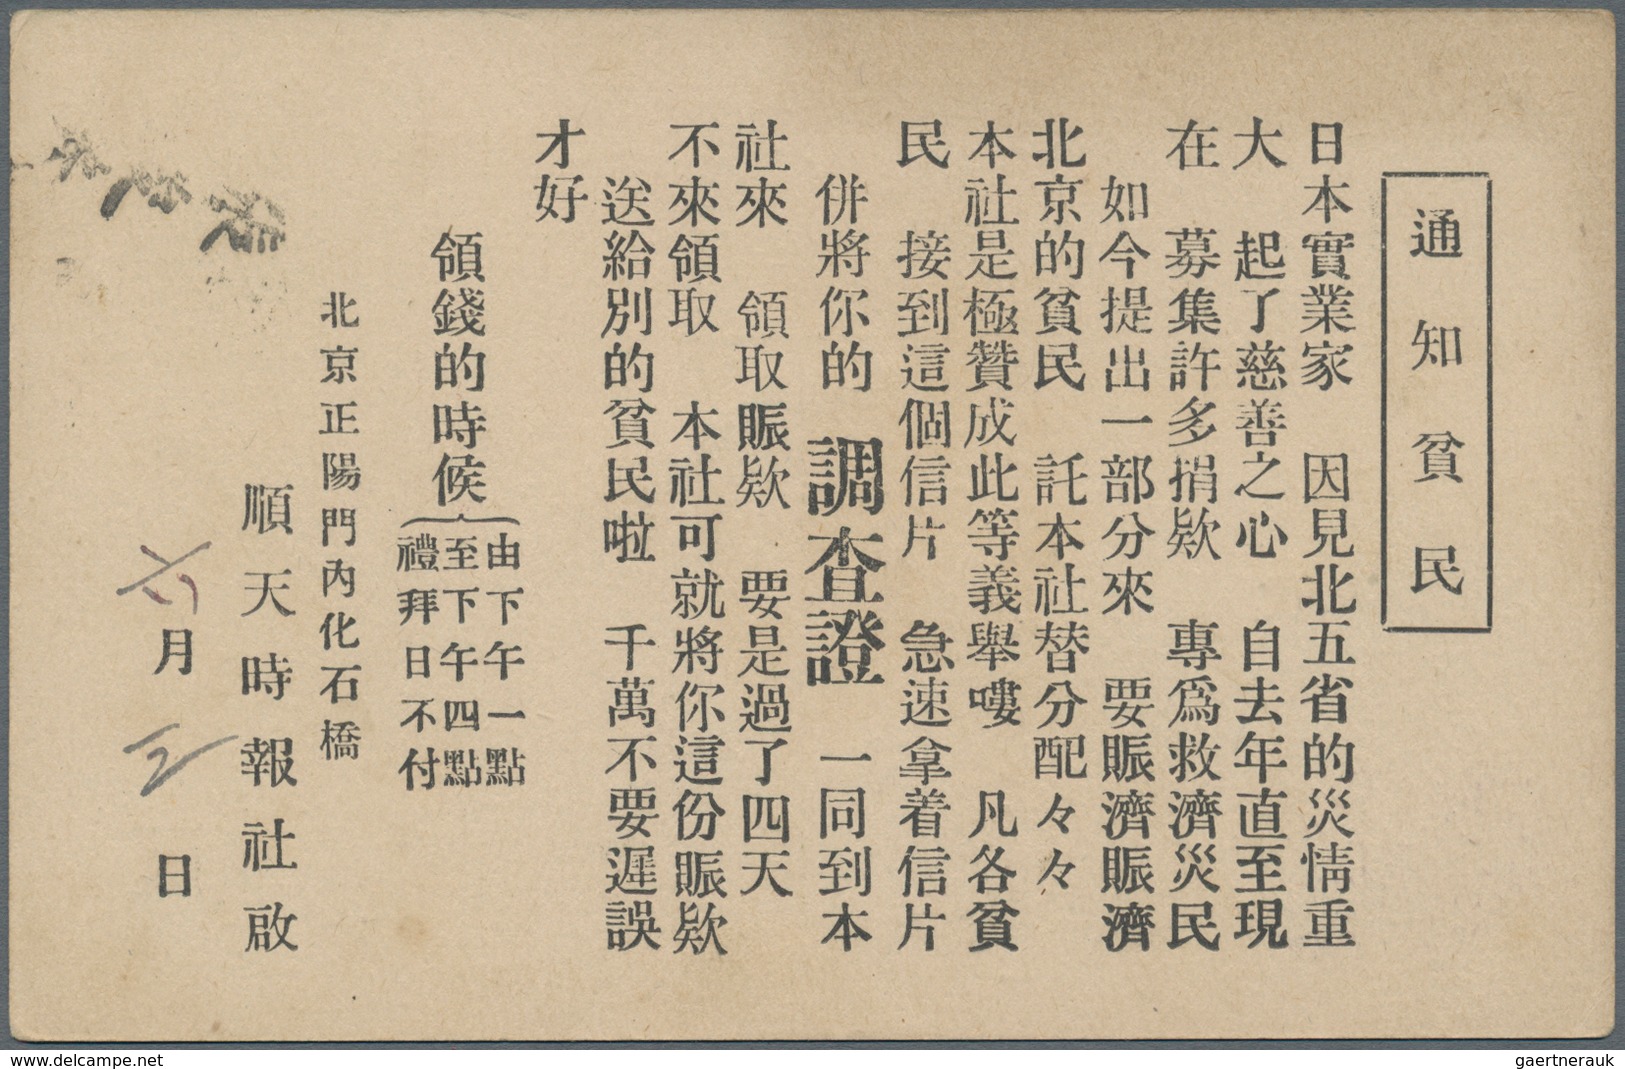 通知貧民
日本實業家　因見北五省的災情重
大　起了慈善之心　自去年直至現
在　募集許多捐欵　專爲救濟災民
如今提出一部分來　要賑濟賑濟
北京的貧民　託本社替分配々々
本社是極贊成此等義舉嘍　凡各貧
民　接到這個信片　急速拿着信片
併將你的　調査證　一同到本
社來　領取賑欵　要是過了四天
不來領取　本社可就將你這份賑欵
送給別的貧民啦　千萬不要遲誤
才好
領錢的時候
由下午一點
至下午四點
禮拜日不付
北京正陽門內化石橋
順天時報社啟
六月三日
delcampe.net
gaertnerauk